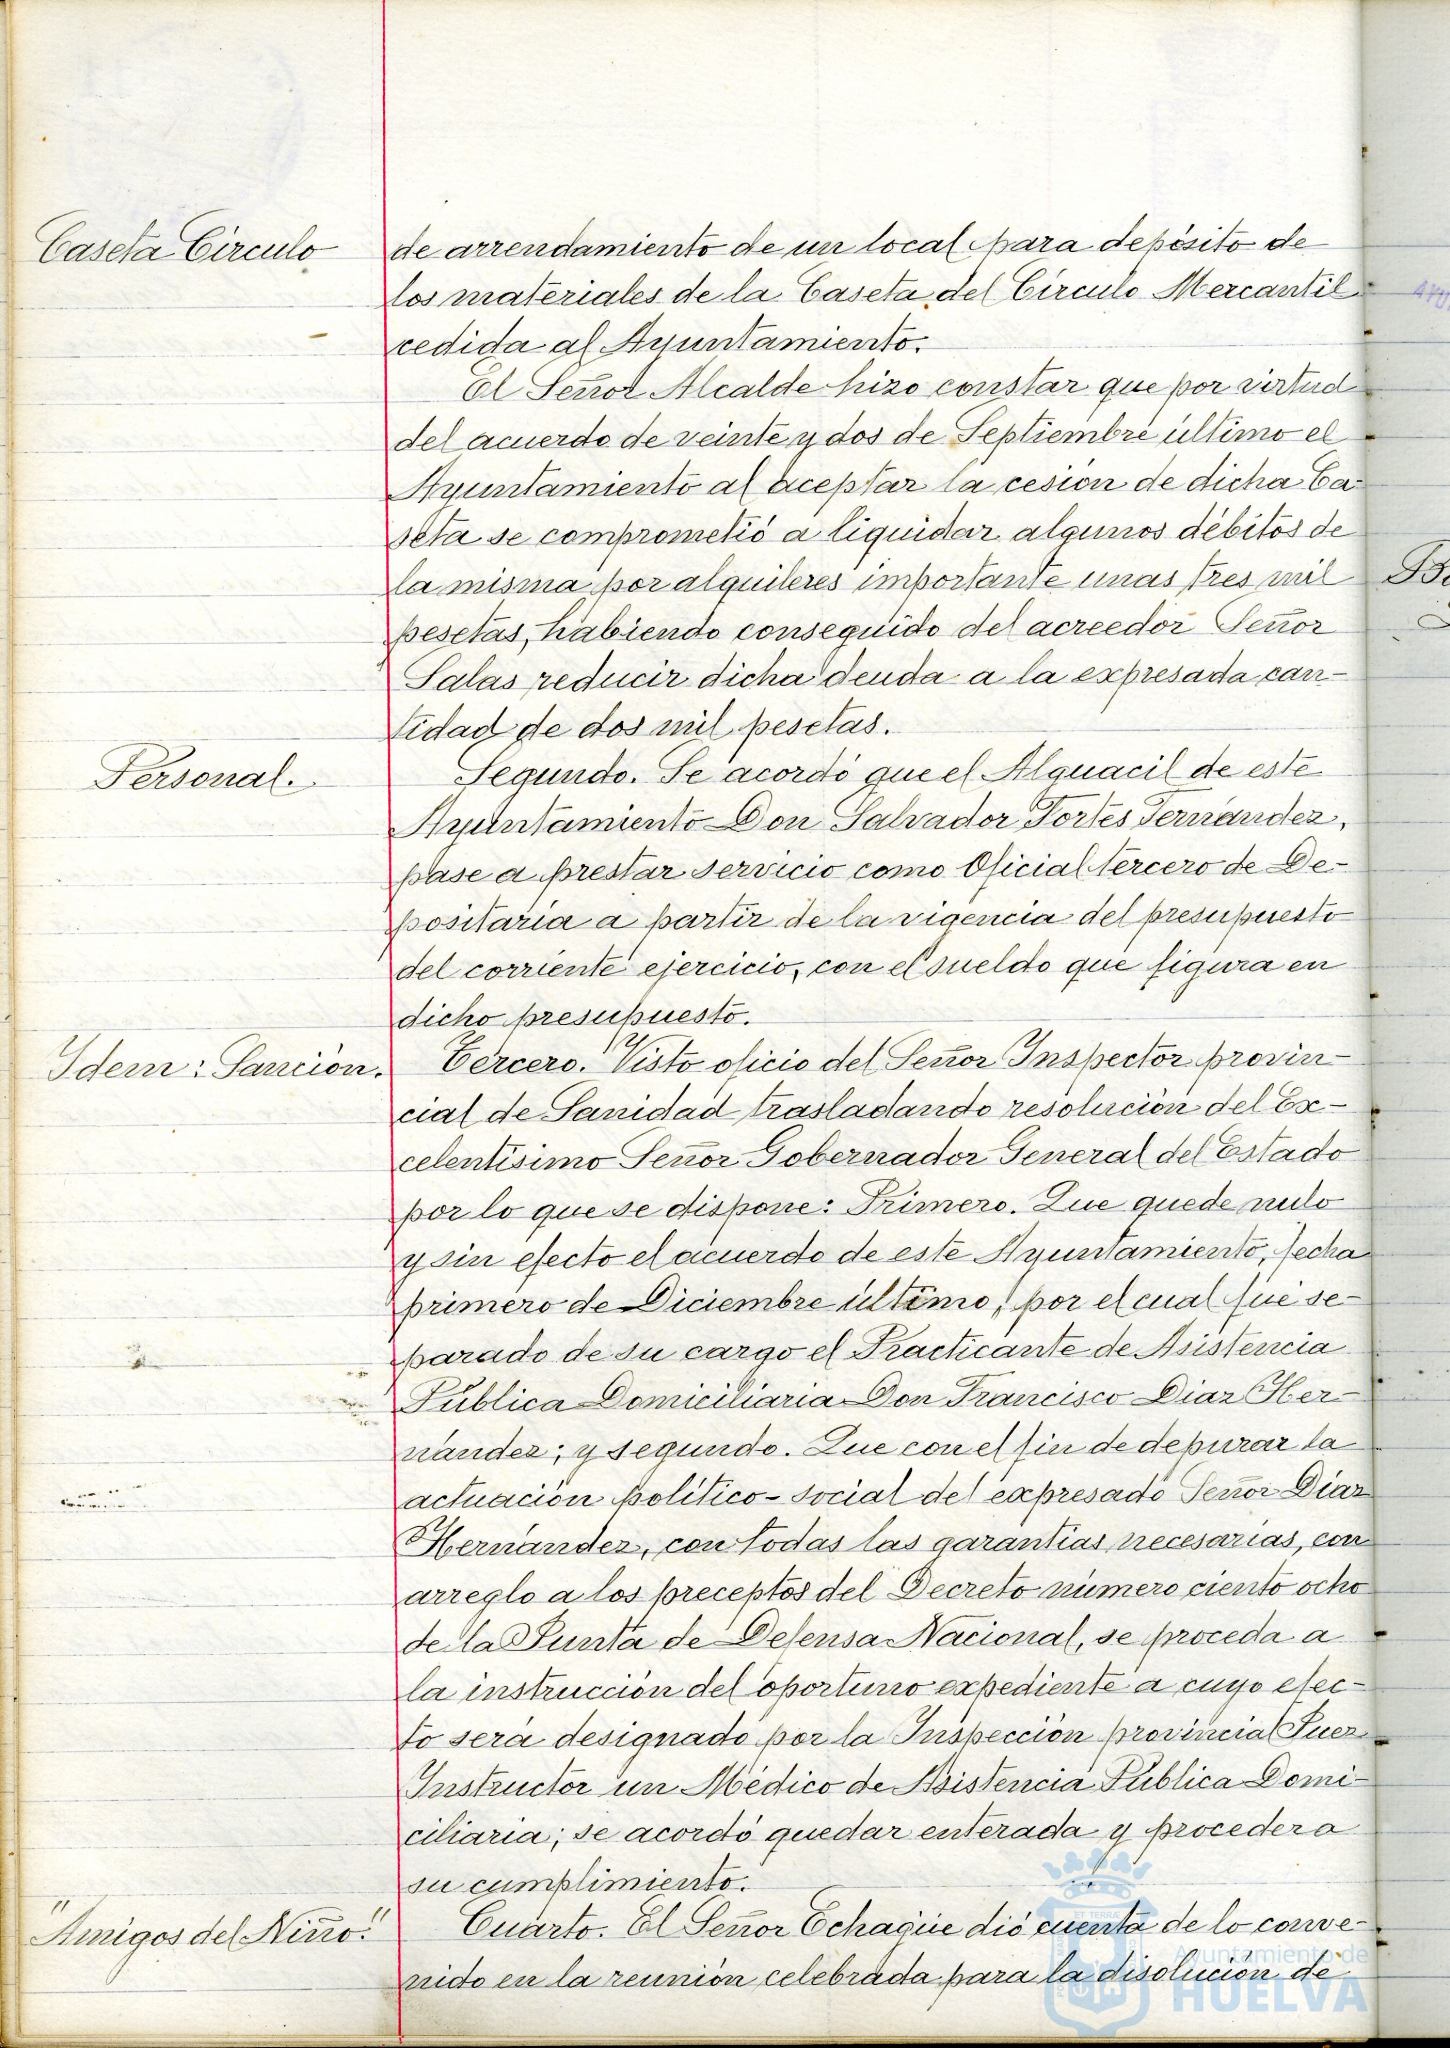 Caseta Círculo
de arrendamiento de un local para depósito de
los materiales de la Caseta del Círculo Mercantil
cedida al Ayuntamiento.
El Señor Alcalde hizo constar que por virtud
del acuerdo de veinte y dos de Septiembre último el
Ayuntamiento al aceptar la cesión de dicha Ca-
seta se comprometió a liquidar algunos débitos de
la misma por alquileres importante unas tres mil
pesetas, habiendo conseguido del acreedor Señor
Salas reducir dicha deuda a la expresada can-
tidad de dos mil pesetas.
Personal.
Segundo. Se acordó que el Alguacil de este
Ayuntamiento Don Salvador Fortes Fernández,
pase a prestar servicio como Oficial tercero de De-
positaria a partir de la vigencia del presupuesto
del corriente ejercicio, con el sueldo que figura en
dicho presupuesto.
Idem: Sanción.
Tercero. Visto oficio del Señor Inspector provin-
cial de Sanidad trasladando resolución del Ex-
celentísimo Señor Gobernador General del Estado
por lo que se dispone: Primero. Que quede nulo
y sin efecto el acuerdo de este Ayuntamiento, fecha
primero de Diciembre último, por el cual fué se-
parado de su cargo el Practicante de Asistencia
Pública Domiciliaria Don Francisco Díaz Her-
nández; y segundo. Que con el fin de depurar la
actuación político-social del expresado Señor Díaz
Hernández, con todas las garantías necesarias, con
arreglo a los preceptos del Decreto número ciento ocho
de la Junta de Defensa Nacional, se proceda a
la instrucción del oportuno expediente a cuyo efec-
to será designado por la Inspección provincial Juez
Instructor un Médico de Asistencia Pública Domi-
ciliaria; se acordó quedar enterada y proceder a
su cumplimiento.
"Amigos del Niño."
Cuarto. El Señor Echagüe dió cuenta de lo conve-
nido en la reunión celebrada para la disolución de
Ayuntamiento de
HUELVA